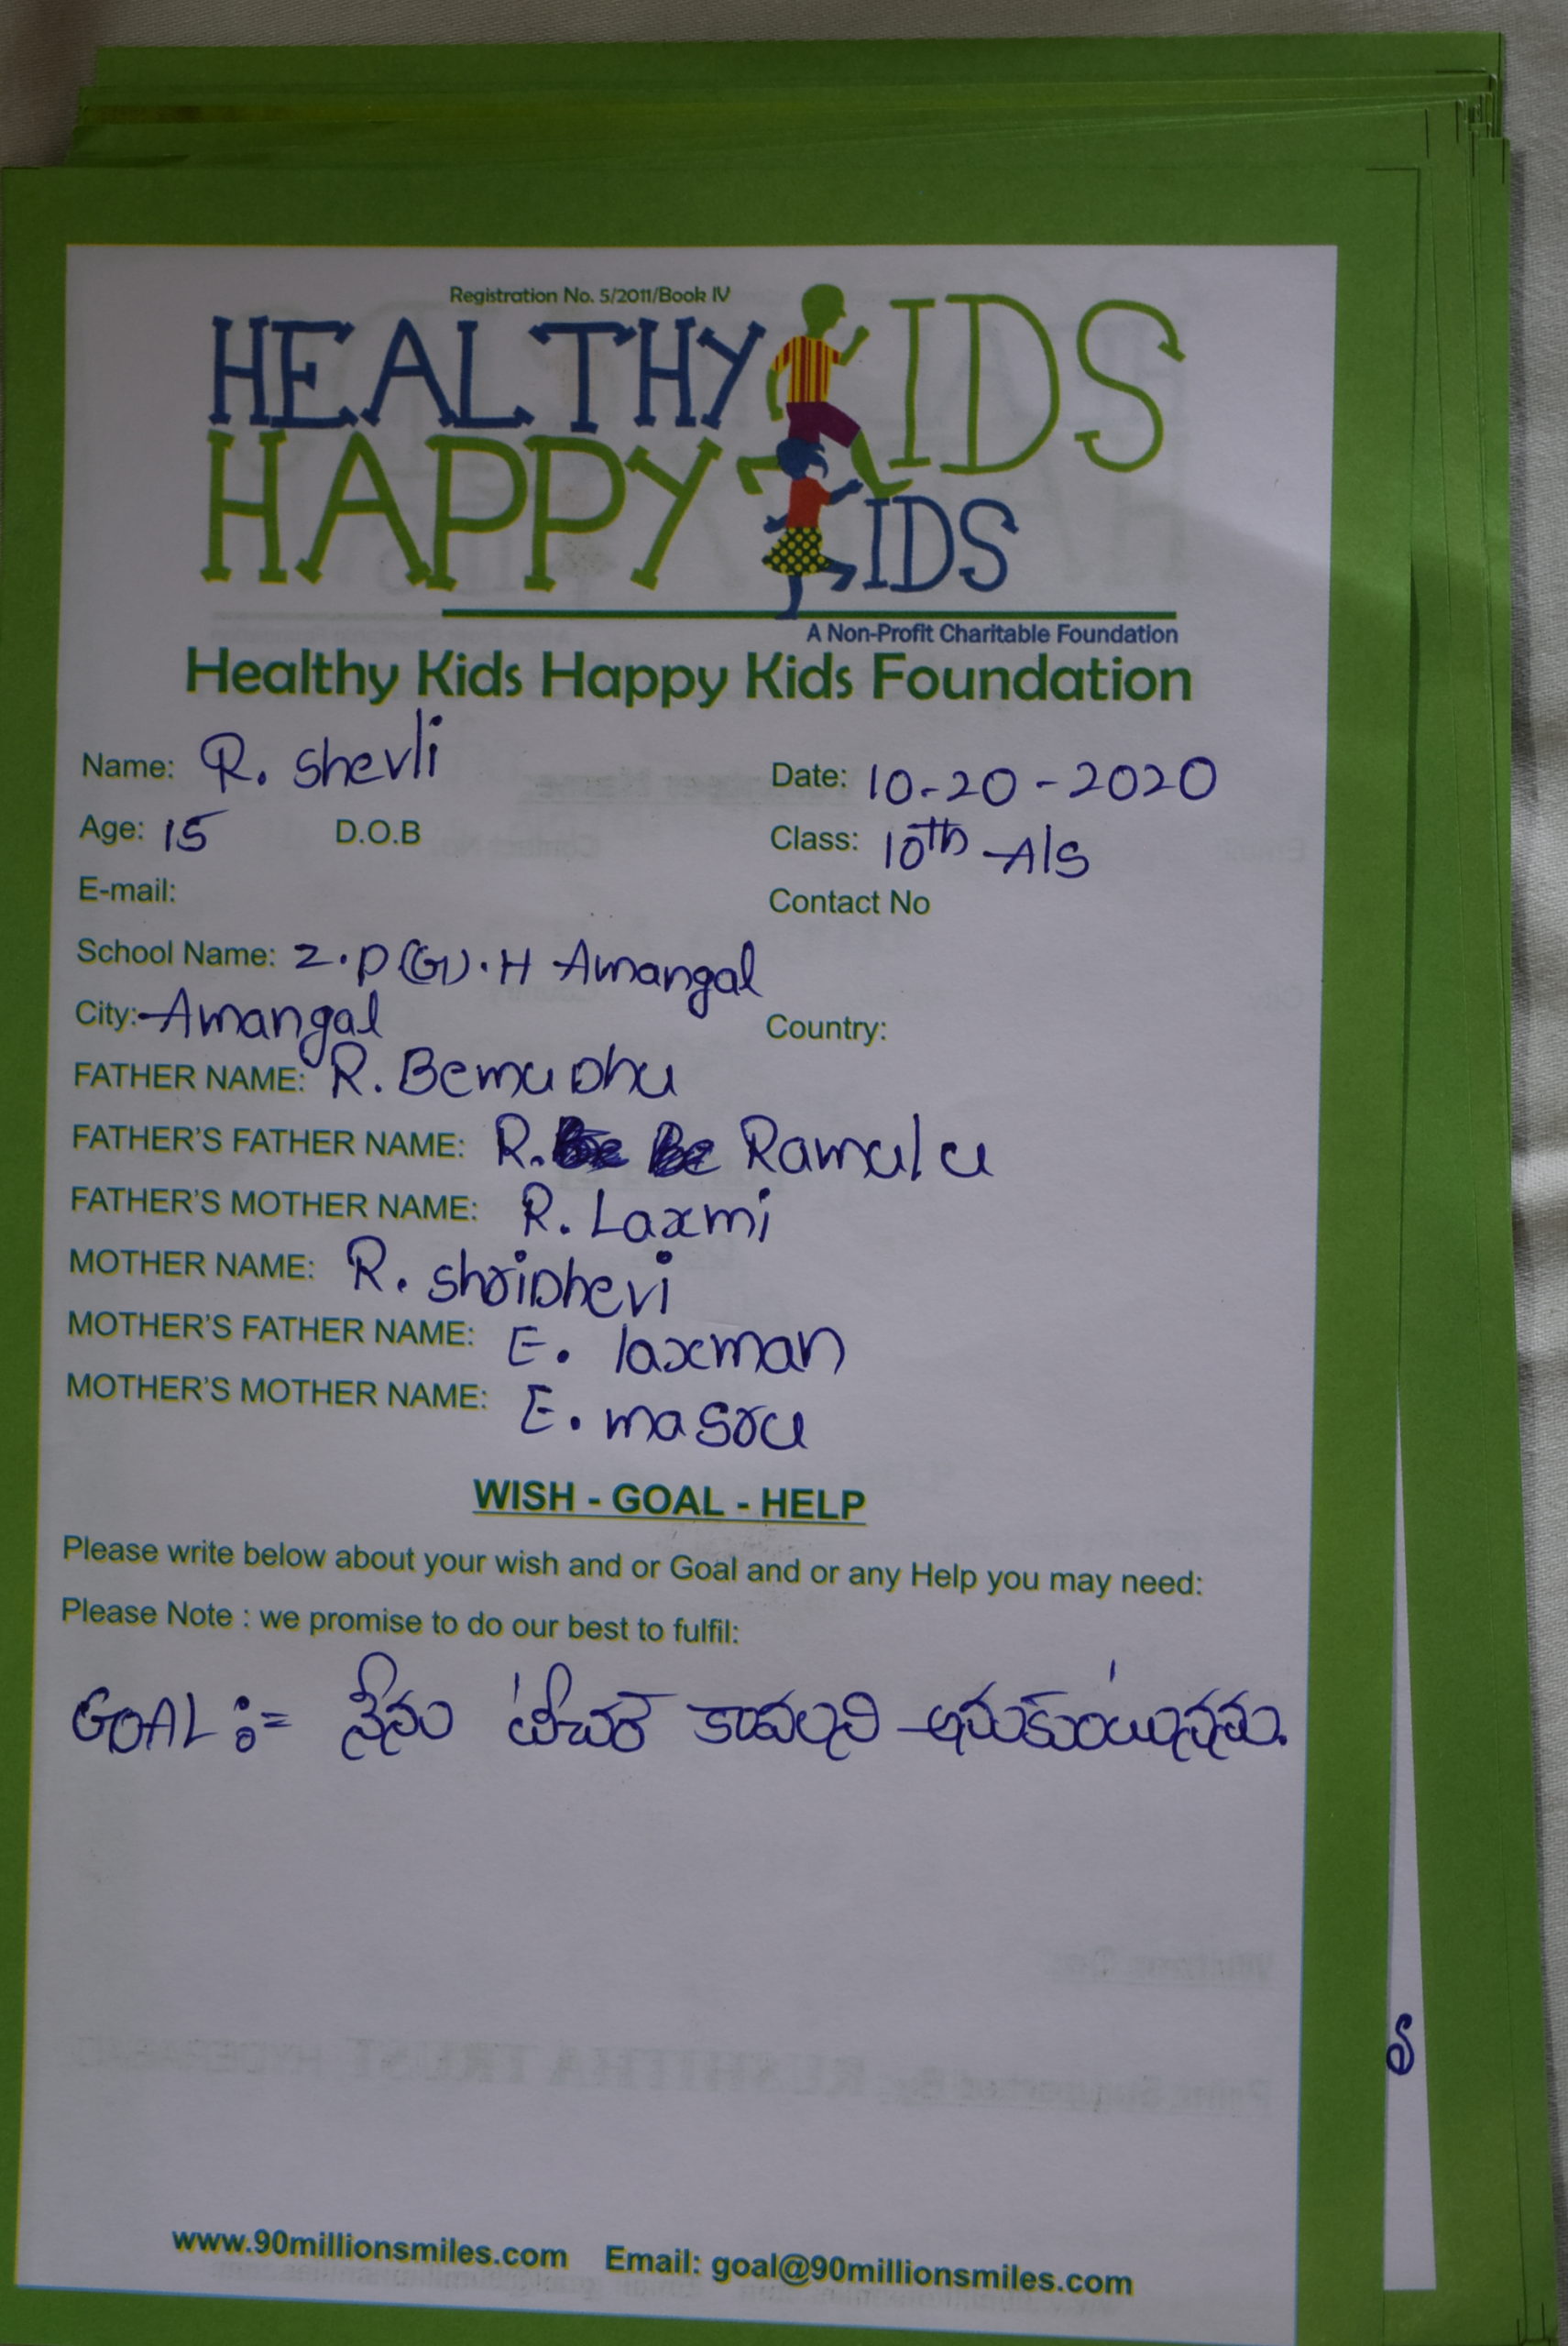 Registration No. 5/2011/Book IV
HEALTHY KIDS
HAPPY KIDS
A Non-Profit Charitable Foundation
Healthy Kids Happy Kids Foundation
Name: R. shevli Date: 10-20-2020
Age: 15 D.O.B Class: 10th A/S
E-mail: Contact No
School Name: Z.P(G).H Amangal
City: Amangal Country:
FATHER NAME: R. Bemudhu
FATHER'S FATHER NAME: R. Ramulu
FATHER'S MOTHER NAME: R. Laxmi
MOTHER NAME: R. shriDhevi
MOTHER'S FATHER NAME: E. laxman
MOTHER'S MOTHER NAME: E. masru
WISH - GOAL - HELP
Please write below about your wish and or Goal and or any Help you may need:
Please Note : we promise to do our best to fulfil:
GOAL :- నేను టీచర్ కావలని అనుకుంటున్నను.
www.90millionsmiles.com Email: goal@90millionsmiles.com